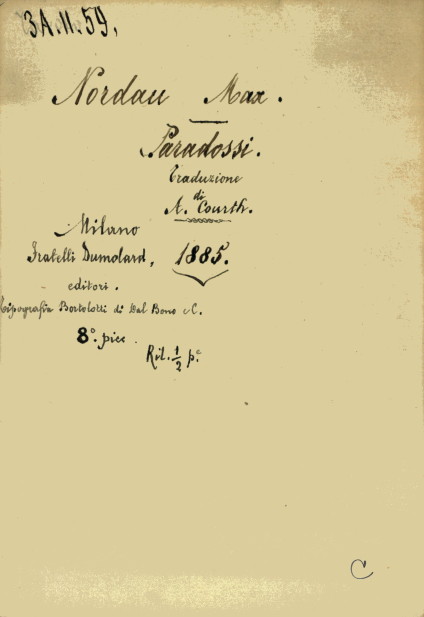 3A.11.59,
Nordau Max.
Paradossi.
Traduzione
di
A. Courth.
Milano
Fratelli Dumolard, 1885.
editori.
Tipografia Bortolotti di Dal Bono e C.
8º. picc.
Ril. 1/2 p.e
C